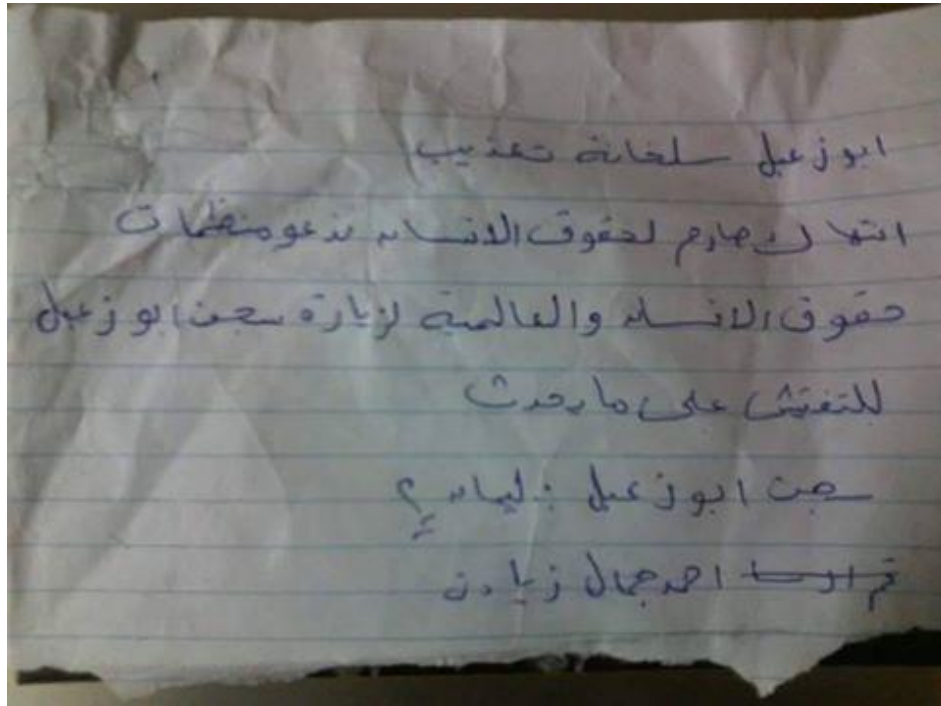 ابو زعبل سلخانة تعذيب
انتهاك صارم لحقوق الانسان ندعو منظمات
حقوق الانسان والعالمية لزيارة سجن ابو زعبل
للتفتيش على ما يحدث
سجن ابو زعبل : ليمان ٢
احمد جمال زيادة